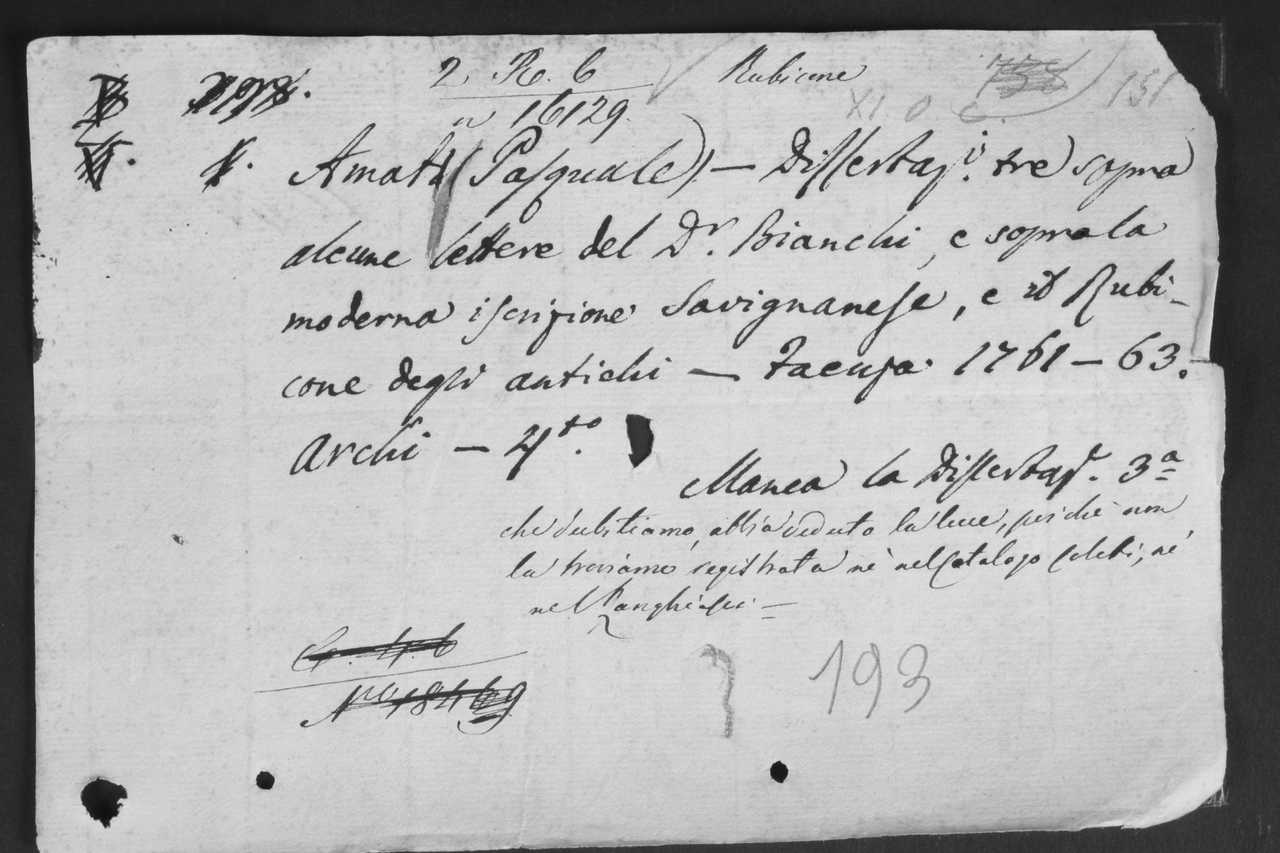 2. R. 6 Rubicone
n 16129.
XI. O. C. 151
Amati (Pasquale) — Dissertazi. tre sopra
alcune lettere del Dr. Bianchi, e sopra la
moderna iscrizione Savignanese, e il Rubi-
cone degli antichi — Faenza 1761 — 63.
Archi — 4to.
Manca la Dissertaz. 3a
che dubitiamo, abbia veduto la luce, perchè non
la troviamo registrata nè nel Catalogo Colebi, nè
nel Ranghiasci —
193